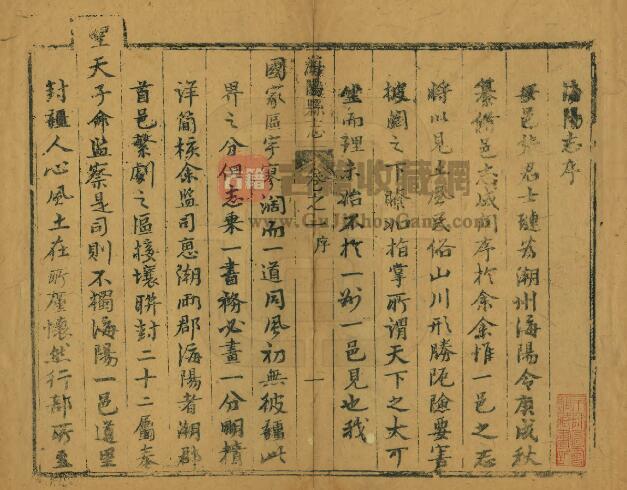 海陽志序
吾邑張君士璉為潮州海陽令庚戌秋
纂修邑志成問序於余余惟一邑之志
將以見土風民俗山川形勝阨險要害
披圖之下瞭如指掌所謂天下之大可
坐而理未始不於一邑見也我
海陽縣志 卷之一 序 一
國家區宇寥濶而一道同風初無彼疆此
界之分但志乘一書務必畫一分明積
詳簡核余監司惠潮兩郡海陽者潮郡
首邑繫劇之區接壤聨封二十二屬泰
聖天子命監察是司則不獨海陽一邑道里
封疆人心風土在所廑懷然行部所至
古籍收藏網
www.GuJiShopCang.com